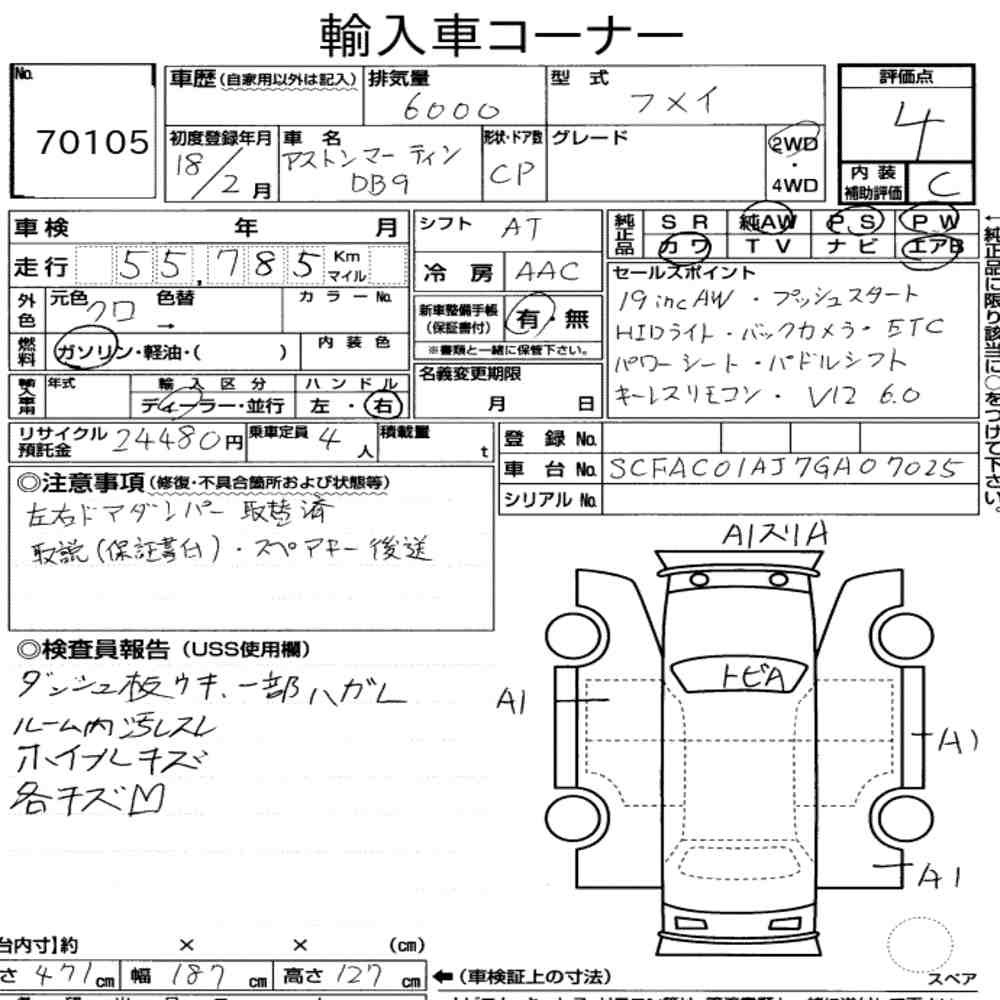 輸入車コーナー
No. 70105
車歴(自家用以外は記入) 排気量 6000 型式 フメイ
評価点 4
初度登録年月 18/2月 車名 アストンマーティン DB9 形状・ドア数 CP グレード 2WD・4WD
内装補助評価 C
車検 年 月
走行 55,785 Km マイル
シフト AT
冷房 AAC
純正品 SR 純AW PS PW
カワ TV ナビ エアB
外色 元色 クロ 色替 → カラーNo.
燃料 ガソリン・軽油・( ) 内装色
新車整備手帳(保証書付) 有・無
※書類と一緒に保管下さい。
輸入車用 年式 輸入区分 ディーラー・並行 ハンドル 左・右
名義変更期限 月 日
セールスポイント
19incAW・プッシュスタート
HIDライト・バックカメラ・ETC
パワーシート・パドルシフト
キーレスリモコン・V12 6.0
リサイクル預託金 24480円 乗車定員 4人 積載量 t
登録No.
車台No. SCFAC01AJ7GA07025
シリアルNo.
←純正品に限り該当に○をつけて下さい。
◎注意事項(修復・不具合箇所および状態等)
左右ドアダンパー取替済
取説(保証書付)・スペアキー後送
◎検査員報告(USS使用欄)
ダッシュ板ウキ、一部ハガレ
ルーム内汚レスレ
ホイールキズ
各キズ凹
A1スリA
トビA
A1
A1
A1
台内寸】約 × × (cm)
さ 471cm 幅 187cm 高さ 127cm ←(車検証上の寸法)
スペア